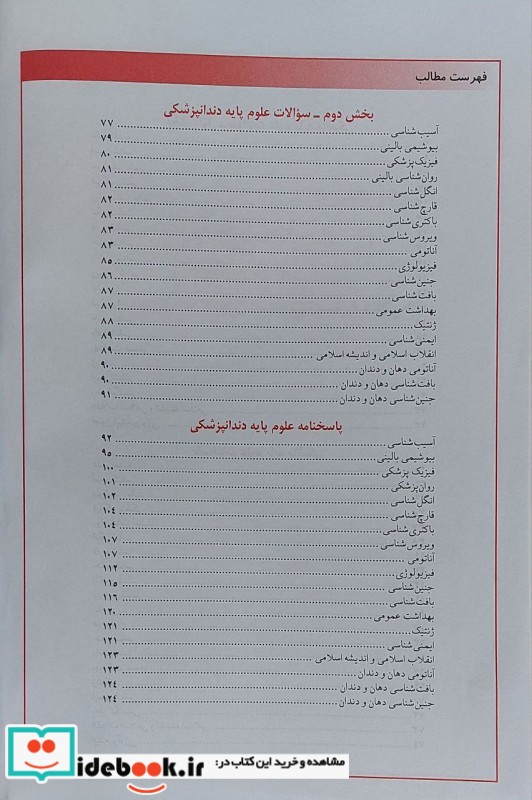 فهرست مطالب
بخش دوم ـ سؤالات علوم پایه دندانپزشکی
آسیب‌شناسی ........ ۷۷
بیوشیمی بالینی ........ ۷۹
فیزیک‌پزشکی ........ ۸۰
روان‌شناسی بالینی ........ ۸۱
انگل‌شناسی ........ ۸۱
قارچ‌شناسی ........ ۸۲
باکتری‌شناسی ........ ۸۲
ویروس‌شناسی ........ ۸۳
آناتومی ........ ۸۳
فیزیولوژی ........ ۸۵
جنین‌شناسی ........ ۸۶
بافت‌شناسی ........ ۸۷
بهداشت عمومی ........ ۸۷
ژنتیک ........ ۸۸
ایمنی‌شناسی ........ ۸۹
انقلاب اسلامی و اندیشه اسلامی ........ ۸۹
آناتومی دهان و دندان ........ ۹۰
بافت‌شناسی دهان و دندان ........ ۹۰
جنین‌شناسی دهان و دندان ........ ۹۱
پاسخنامه علوم پایه دندانپزشکی
آسیب‌شناسی ........ ۹۲
بیوشیمی بالینی ........ ۹۵
فیزیک پزشکی ........ ۱۰۰
روان‌پزشکی ........ ۱۰۱
انگل‌شناسی ........ ۱۰۲
قارچ‌شناسی ........ ۱۰۴
باکتری‌شناسی ........ ۱۰۴
ویروس‌شناسی ........ ۱۰۷
آناتومی ........ ۱۰۷
فیزیولوژی ........ ۱۱۲
جنین‌شناسی ........ ۱۱۵
بافت‌شناسی ........ ۱۱۶
بهداشت عمومی ........ ۱۲۰
ژنتیک ........ ۱۲۱
ایمنی‌شناسی ........ ۱۲۱
انقلاب اسلامی و اندیشه اسلامی ........ ۱۲۳
آناتومی دهان و دندان ........ ۱۲۳
بافت‌شناسی دهان و دندان ........ ۱۲۴
جنین‌شناسی دهان و دندان ........ ۱۲۴
مشاهده و خرید این کتاب در:
idebook.ir